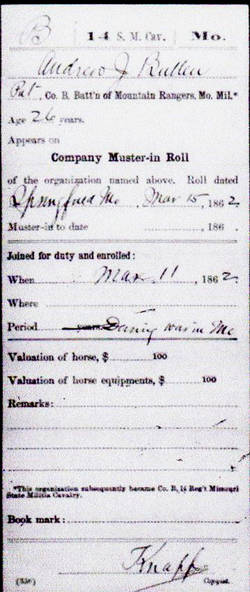 B 14 S. M. Cav. Mo.
Andrew J Butler
Pvt, Co. B, Batt'n of Mountain Rangers, Mo. Mil.*
Age 26 years.
Appears on
Company Muster-in Roll
of the organization named above. Roll dated
Springfield Mo Mar 15, 1862
Muster-in to date , 186
Joined for duty and enrolled:
When Mar 11 1862.
Where
Period years During war in Mo
Valuation of horse, $ 100
Valuation of horse equipments, $ 100
Remarks:
*This organization subsequently became Co. B, 14 Reg't Missouri
State Militia Cavalry.
Book mark:
Knapp
(356) Copyist.